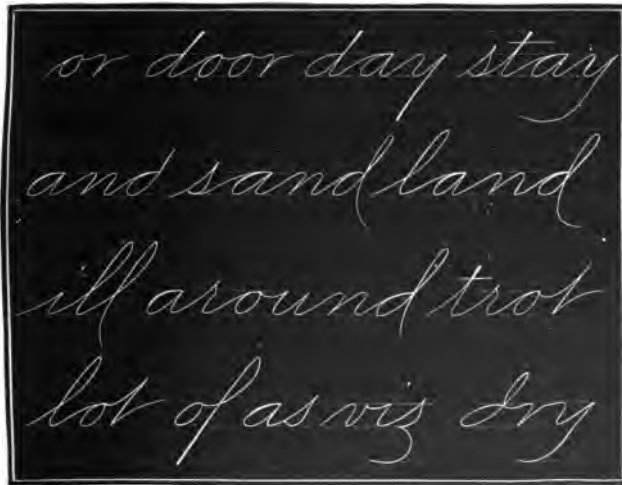 or door day stay
and sand land
ill around trot
lot of as viz dry